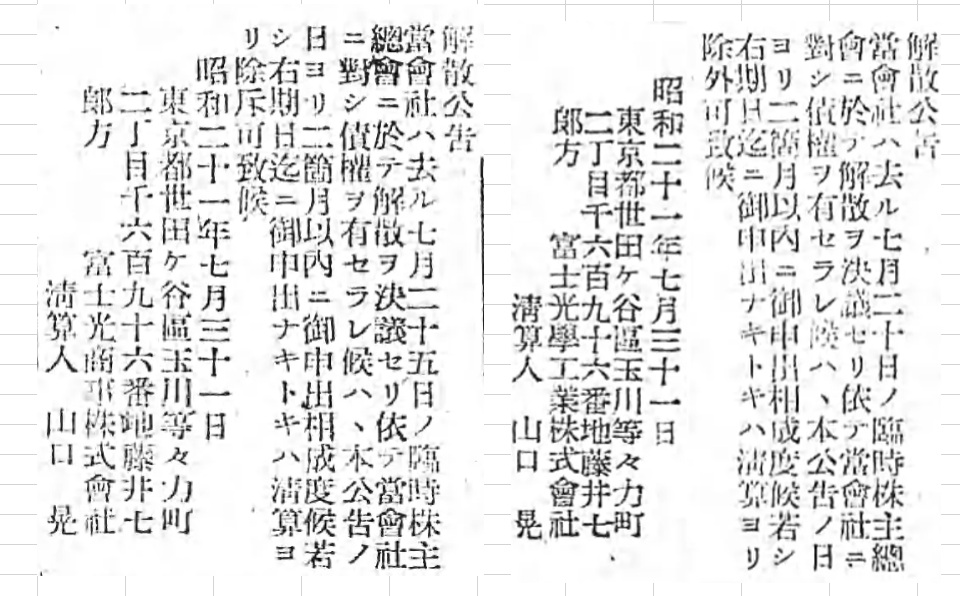 解散公告
當會社ハ去ル七月二十日ノ臨時株主總
會ニ於テ解散ヲ決議セリ依テ當會社ニ
對シ債權ヲ有セラレ候ハヽ本公告ノ日
ヨリ二箇月以內ニ御申出相成度候若シ
右期日迄ニ御申出ナキトキハ淸算ヨリ
除外可致候
昭和二十一年七月三十一日
東京都世田ケ谷區玉川等々力町
二丁目千六百九十六番地藤井七
郎方 富士光學工業株式會社
淸算人 山口 晃
解散公告
當會社ハ去ル七月二十五日ノ臨時株主
總會ニ於テ解散ヲ決議セリ依テ當會社
ニ對シ債權ヲ有セラレ候ハヽ本公告ノ
日ヨリ二箇月以內ニ御申出相成度候若
シ右期日迄ニ御申出ナキトキハ淸算ヨ
リ除斥可致候
昭和二十一年七月三十一日
東京都世田ケ谷區玉川等々力町
二丁目千六百九十六番地藤井七
郎方 富士光商事株式會社
淸算人 山口 晃